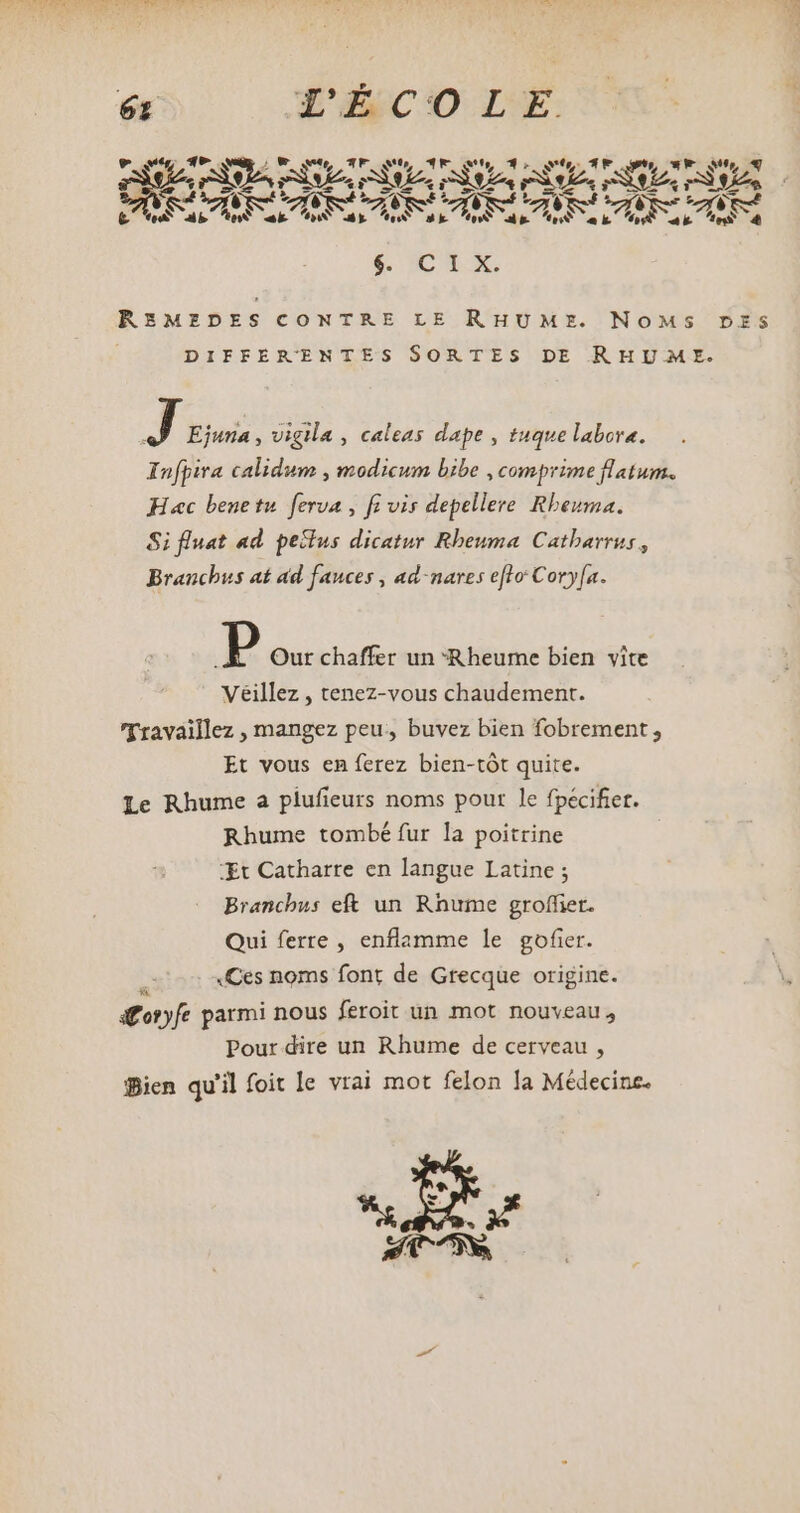 62 L'ÉCOLE
§. CIX.
REMEDES CONTRE LE RHUME. NOMS DES
DIFFERENTES SORTES DE RHUME.
JEjuna, vigila, caleas dape, tuque labora.
Inſpira calidum, modicum bibe, comprime flatum.
Hæc bene tu ſerva, ſi vis depellere Rheuma.
Si fluat ad pectus dicatur Rheuma Catharrus,
Branchus at ad fauces, ad nares eſto Coryſa.
POur chaſſer un Rheume bien vîte
Véillez, tenez-vous chaudement.
Travaillez, mangez peu, buvez bien ſobrement,
Et vous en ſerez bien-tôt quite.
Le Rhume a pluſieurs noms pour le ſpécifier.
Rhume tombé ſur la poitrine
Et Catharre en langue Latine;
Branchus eſt un Rhume groſſier.
Qui ſerre, enflamme le goſier.
Ces noms ſont de Grecque origine.
Coryſe parmi nous ſeroit un mot nouveau,
Pour dire un Rhume de cerveau,
Bien qu'il ſoit le vrai mot ſelon la Médecine.